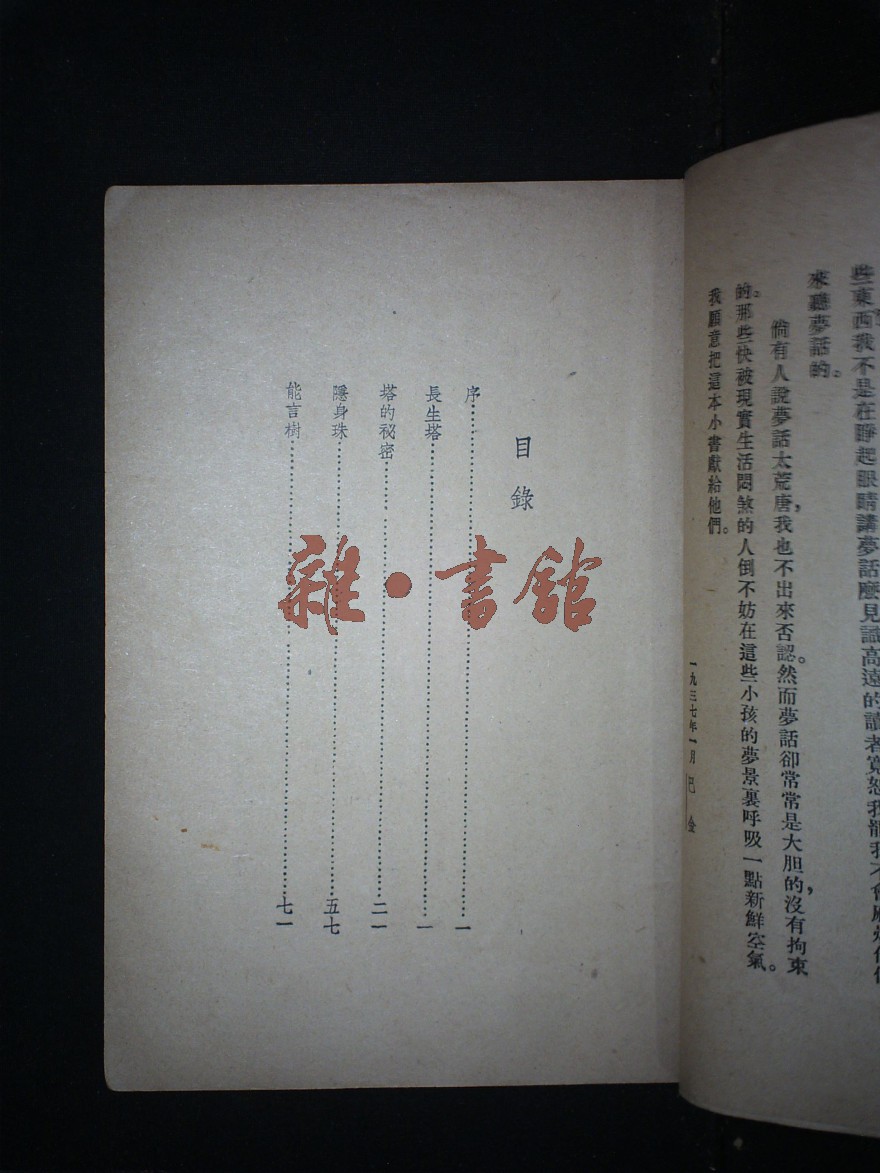 些東西我不是在睜起眼睛講夢話麼見識高遠的讀者寬恕我罷我不會
來聽夢話的。
倘有人說夢話太荒唐，我也不出來否認。然而夢話卻常常是大胆的，沒有拘束
的。那些快被現實生活悶煞的人倒不妨在這些小孩的夢景裏呼吸一點新鮮空氣。
我願意把這本小書獻給他們。
一九三七年一月 巴金
目錄
序……一
長生塔……一
塔的祕密……二一
隱身珠……五七
能言樹……七一
雜·書館